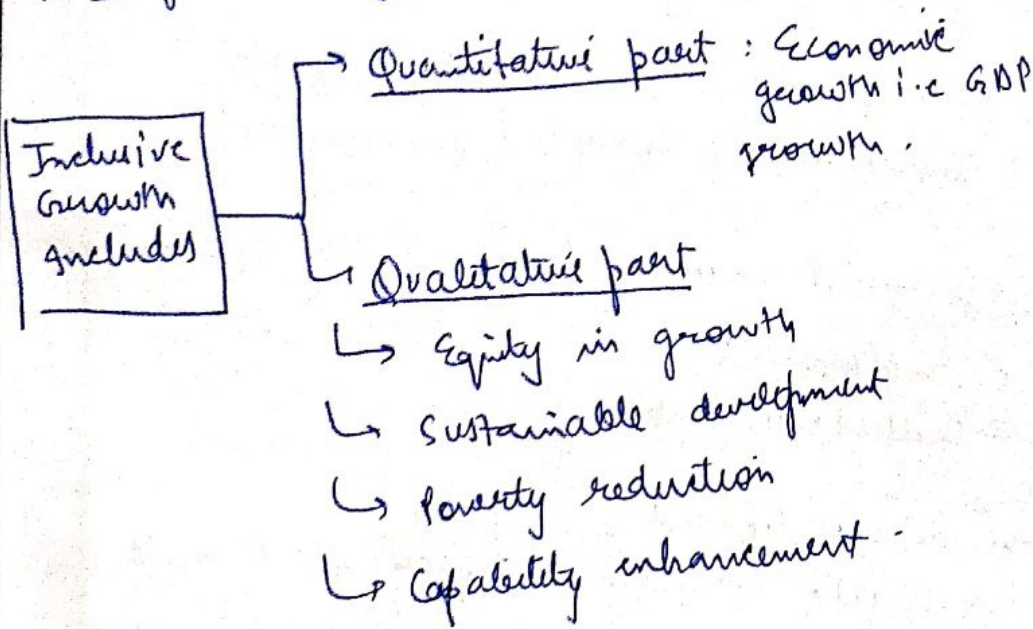 Inclusive
Growth
includes
Quantitative part : Economic
growth i.e GDP
growth.
Qualitative part
Equity in growth
Sustainable development
Poverty reduction
Capability enhancement.